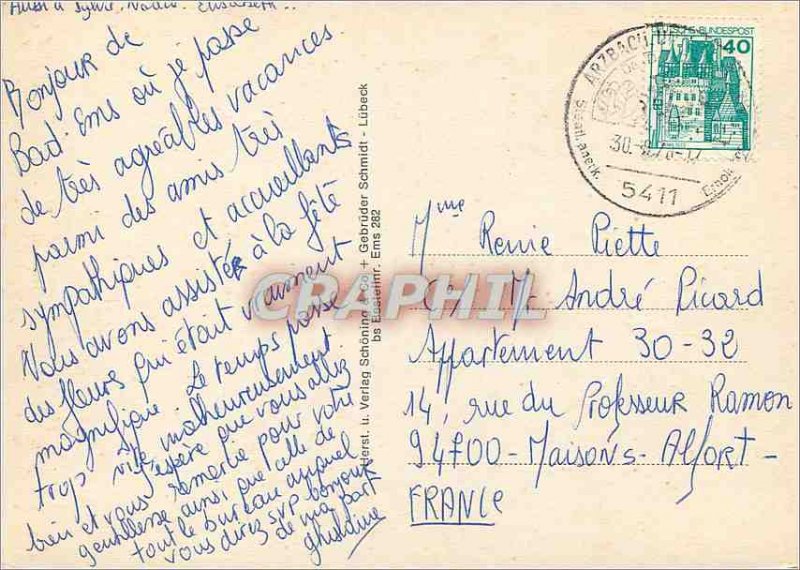 Aussi à Sylvie, Nadia. Elisabeth..
Bonjour de
Bad-Ems où je passe
de très agréables vacances
parmi des amis très
sympathiques et accueillants
Nous avons assisté à la fête
des fleurs qui était vraiment
magnifique. Le temps passe
trop vite malheureusement.
J'espère que vous allez
bien et vous remercie pour votre
gentillesse ainsi que celle de
tout le bureau auquel
vous direz SVP bonjour
de ma part
ghislaine
Herst. u. Verlag Schöning & Co. + Gebrüder Schmidt - Lübeck
bs Ems 282
CRAPHIL
DEUTSCHE BUNDESPOST
40
ARZBACH
30.
5411
Mme Renie Piette
M. André Picard
Appartement 30-32
14, rue du Professeur Ramon
94700 - Maisons-Alfort -
FRANCE